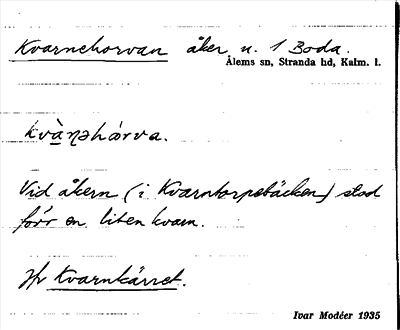 Kvarnehorvan åker u. 1 Boda.
Ålems sn, Stranda hd, Kalm. l.
kvàṇəhårva.
Vid åkern (i Kvarntorpsbäcken) stod
förr en liten kvarn.
Jfr Kvarnkärret.
Ivar Modéer 1935